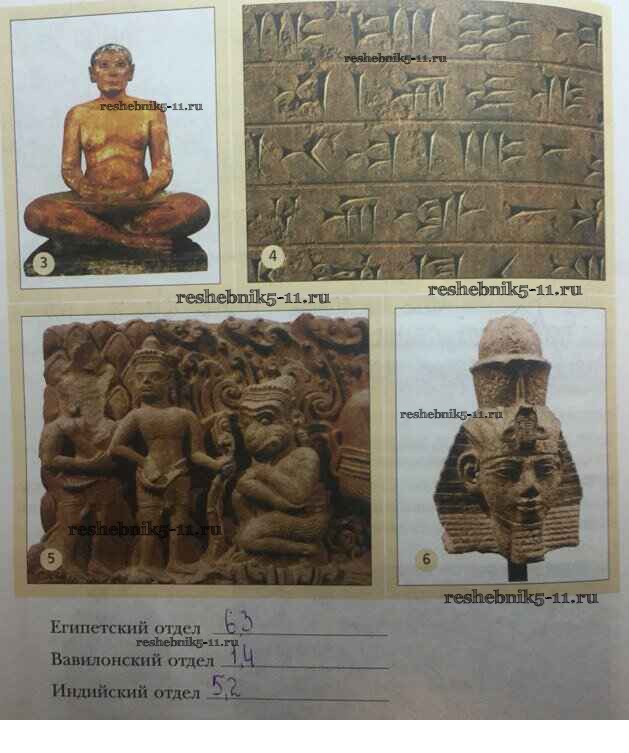 reshebnik5-11.ru
reshebnik5-11.ru
3
4
reshebnik5-11.ru
reshebnik5-11.ru
reshebnik5-11.ru
reshebnik5-11.ru
5
6
reshebnik5-11.ru
Египетский отдел 6,3
reshebnik5-11.ru
Вавилонский отдел 1,4
Индийский отдел 5,2